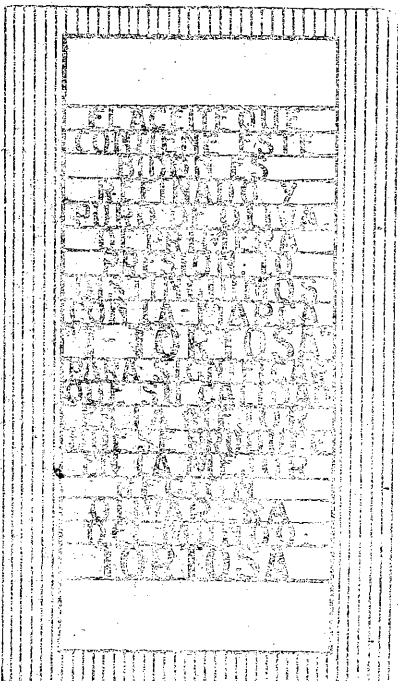 EL ACEITE QUE
CONTIENE ESTE
BIDON ES
REFINADO Y
PURO DE OLIVA
DE PRIMERA
PRESION LO
DISTINGUIMOS
CON LA MARCA
TORTOSA
PARA SIGNIFICAR
QUE SU CALIDAD
ES LA QUE HOY
PRODUCE
EN LA MEJOR
REGION
OLIVARERA
DEL MUNDO
TORTOSA